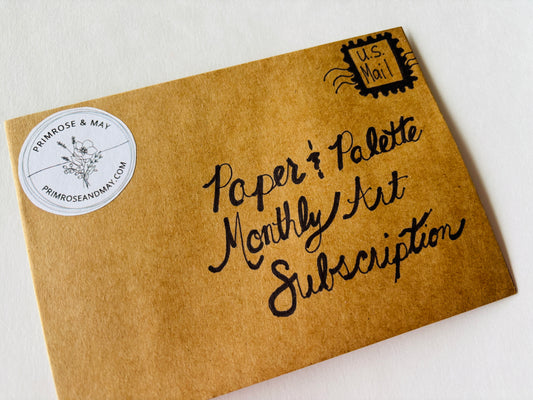 PRIMROSE & MAY
PRIMROSEANDMAY.COM
U.S.
Mail
Paper & Palette
Monthly Art
Subscription